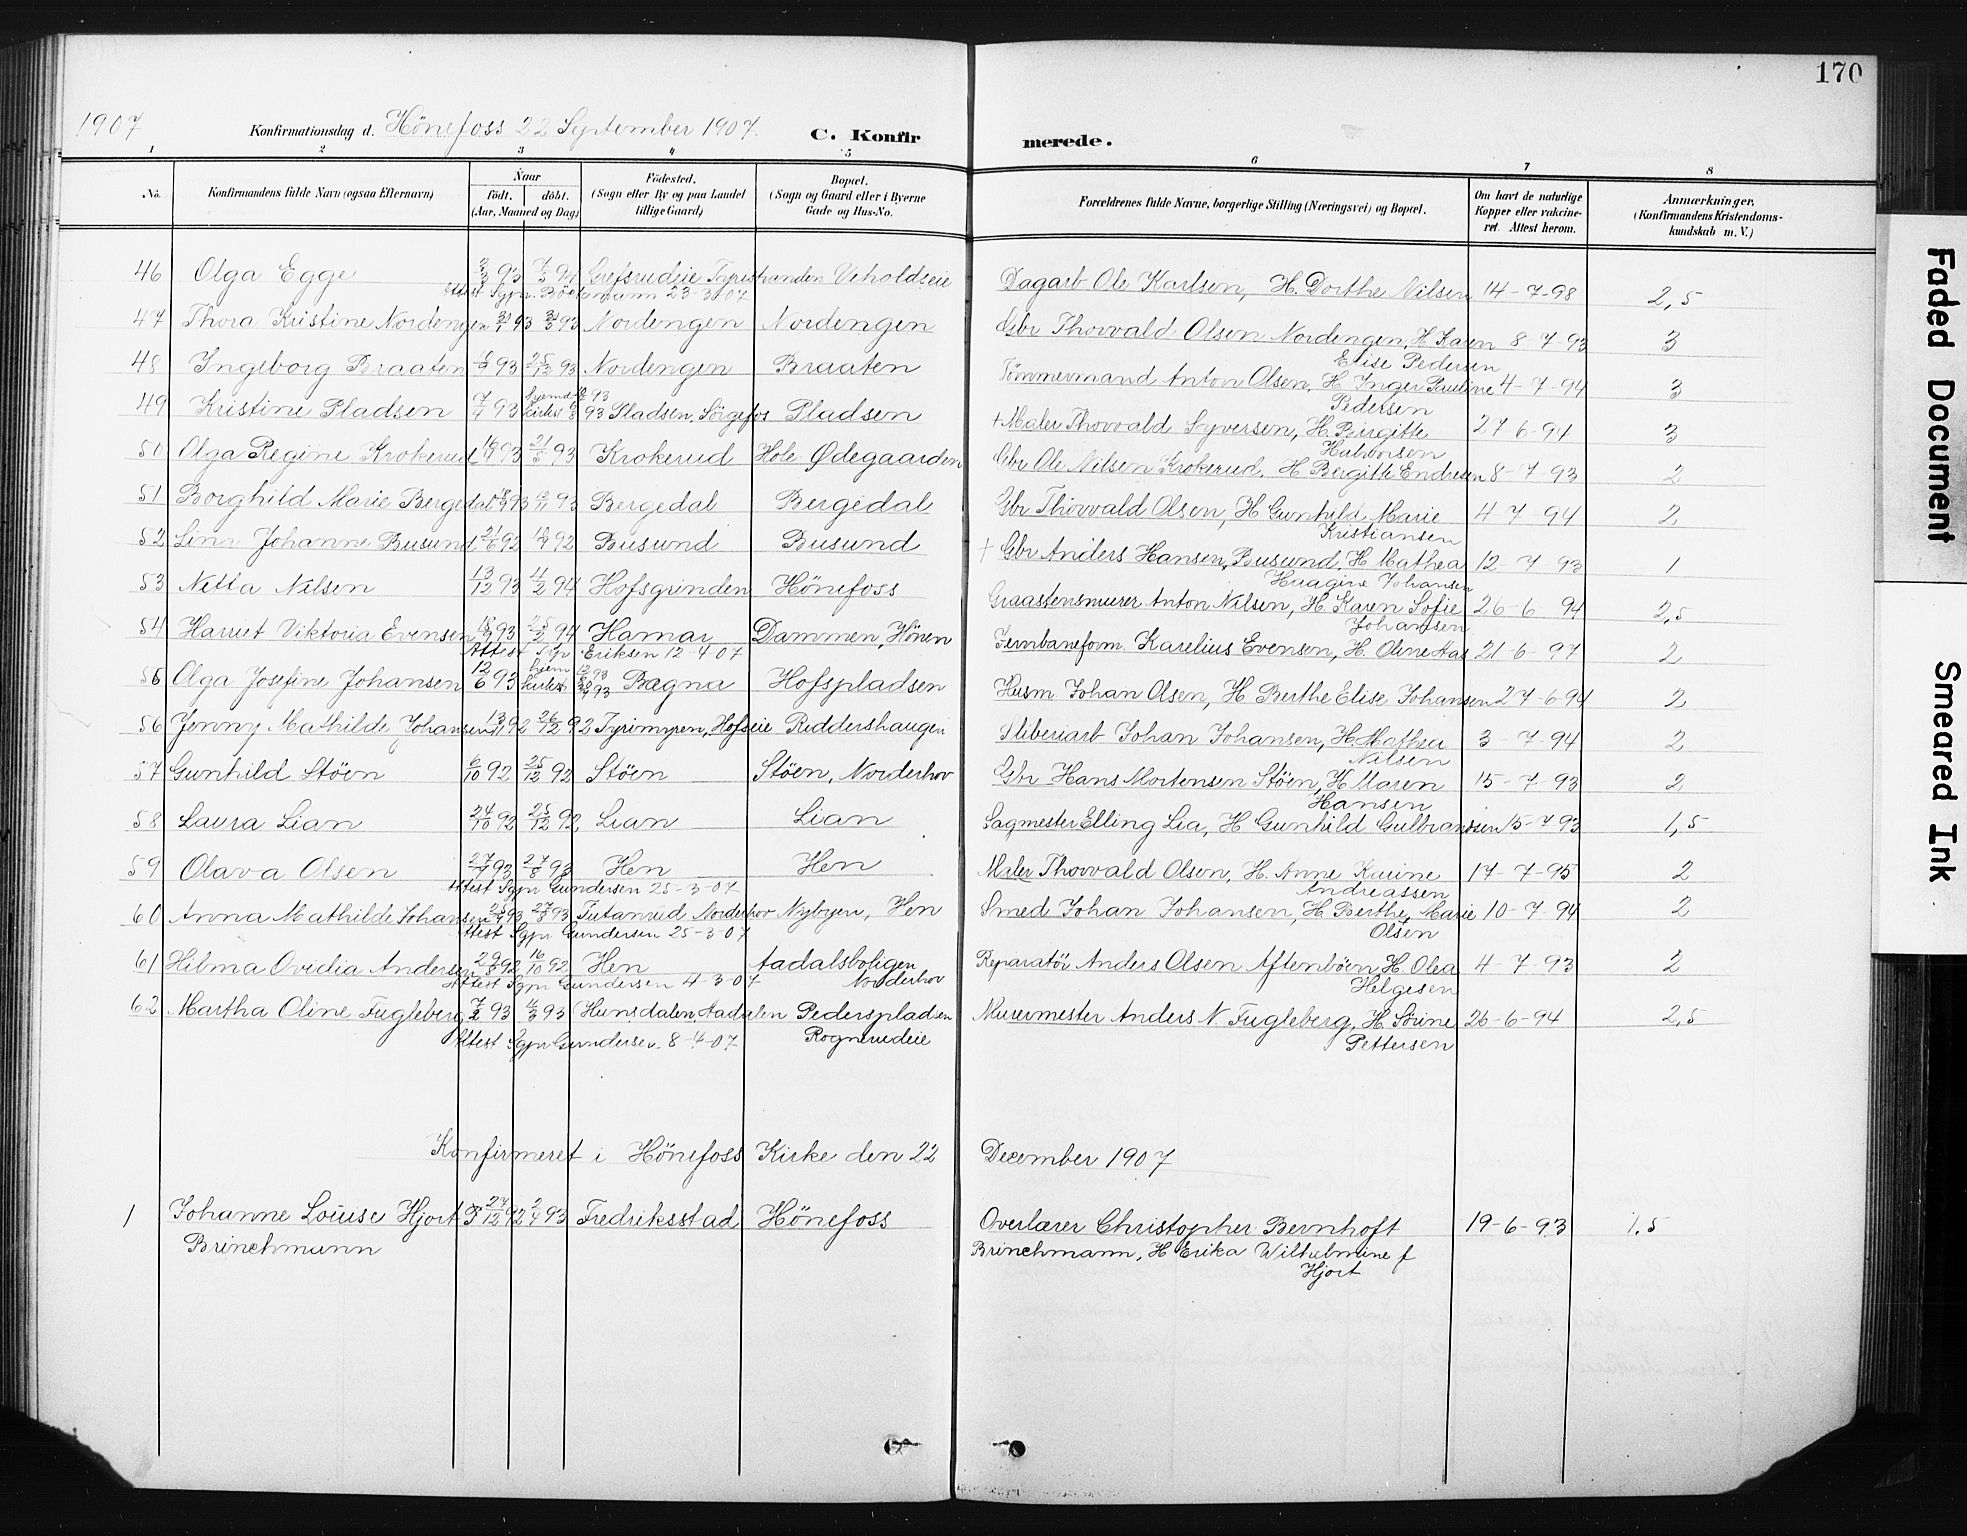 170
1907 Konfirmationsdag d. Hönefoss 22 September 1907. C. Konfirmerede.
1 2 3 4 5 6 7 8
No. Konfirmandens fulde Navn (ogsaa Efternavn) Naar födt. döbt. (Aar, Maaned og Dag) Födested. (Sogn eller By og paa Landet tillige Gaard) Bopæl. (Sogn og Gaard eller i Byerne Gade og Hus-No. Forældrenes fulde Navne, borgerlige Stilling (Næringsvei) og Bopæl. Om havt de naturlige Kopper eller vakcineret. Attest herom. Anmærkninger. (Konfirmandens Kristendomskundskab m. V.)
46 Olga Egge 3/3 93 7/5 94 Grefsrudeie Tyristranden Veholdseie Dagarb Ole Karlsen, H. Dorthe Nilsen 14-7-98 2,5
Attest Sgpr. Böckmann 23-3-07
47 Thora Kristine Nordengen 93 93 Nordengen Nordengen Gbr Thorvald Olsen Nordengen, H. Karen 8-7-93 3
Elise Pedersen
48 Ingeborg Braaten 93 25/12 93 Nordengen Braaten Tömmermand Anton Olsen, H. Inger Pauline 4-7-94 3
Pedersen
49 Kristine Pladsen 7/4 93 hjemd 93 kirket 93 Pladsen, Sörgefos Pladsen + Maler Thorvald Syversen, H. Birgitte 27-6-94 3
Halvorsen
50 Olga Regine Krokerud 93 21/5 93 Krokerud Hole Ødegaarden Gbr Ole Nilsen Krokerud, H Bergitte Endresen 8-7-93 2
51 Borghild Marie Bergedal 93 93 Bergedal Bergedal Gbr Thorvald Olsen, H Gunhild Marie 4-7-94 2
Kristiansen
52 Lina Johanne Busund 21/6 92 92 Busund Busund + Gbr Anders Hansen, Busund, H Mathea 12-7-93 1
Haagine Johansen
53 Netta Nilsen 13/12 93 11/2 94 Hofsgrunden Hönefoss Graastensmurer Anton Nilsen, H. Karen Sofie 26-6-94 2,5
Johansen
54 Harriet Viktoria Evensen 18/9 93 25/2 94 Hamar Dammen, Hönen Jernbaneform. Karelius Evensen, H. Oline Aas 21-6-97 2
Attest Sgpr Eriksen 12-4-07
55 Olga Josefine Johansen 12/6 93 hjem 93 kirket 93 Bagna Hofspladsen Husm Johan Olsen, H Berthe Elise Johansen 27-6-94 2
56 Jenny Mathilde Johansen 13/11 92 26/12 92 Tyrimyren, Hofseie Riddershaugen Sliberiarb Johan Johansen, H. Mathea 3-7-94 2
Nilsen
57 Gunhild Stöen 6/10 92 25/12 92 Stöen Stöen, Norderhov Gbr Hans Mortensen Stöen, H Maren 15-7-93 2
Hansen
58 Laura Lian 24/10 92 25/12 92 Lian Lian Sagmester Elling Lia, H Gunhild Gulbrandsen 15-7-93 1,5
59 Olava Olsen 27/7 93 27/8 93 Hen Hen Maler Thorvald Olsen, H. Anne Karine 17-7-95 2
Attest Sgpr Gundersen 25-3-07 Andreassen
60 Anna Mathilde Johansen 93 27/8 93 Tutanrud Norderhov Nybyen, Hen Smed Johan Johansen, H. Berthe Marie 10-7-94 2
Attest Sgpr Gundersen 25-3-07 Olsen
61 Hilma Ovidia Andersen 29/8 92 16/10 92 Hen Aadalsboligen Reparatör Anders Olsen Aftenböen, H. Olea 4-7-93 2
Attest Sgpr Gundersen 4-3-07 Norderhov Helgesen
62 Martha Oline Fugleberg 93 93 (Hunsdalen, Aadalen Pederspladsen Murermester Anders N. Fugleberg, H. Sörine 26-6-94 2,5
Attest Sgpr Gundersen 8-4-07 Rognerudeie Pettersen
Konfirmeret i Hönefoss Kirke den 22 December 1907
1 Johanne Louise Hjort P 27/12 92 2/4 93 Fredriksstad Hönefoss Overlærer Christopher Bernhoft 19-6-93 1.5
Brinchmann Brinchmann, H Erika Wilhelmine f
Hjort
Faded Document
Smeared Ink